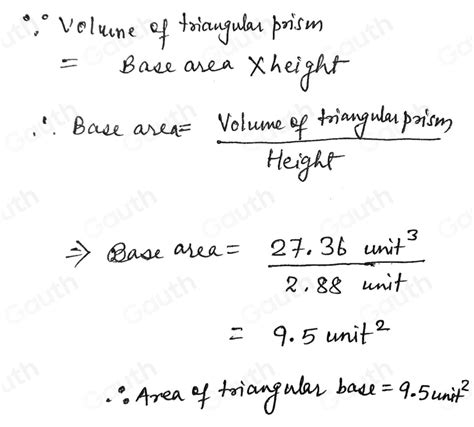 ∵ Volume of triangular prism
= Base area × height
∴ Base area = Volume of triangular prism
Height
⇒ Base area = 27.36 unit³
2.88 unit
= 9.5 unit²
∴ Area of triangular base = 9.5 unit²
Gauth